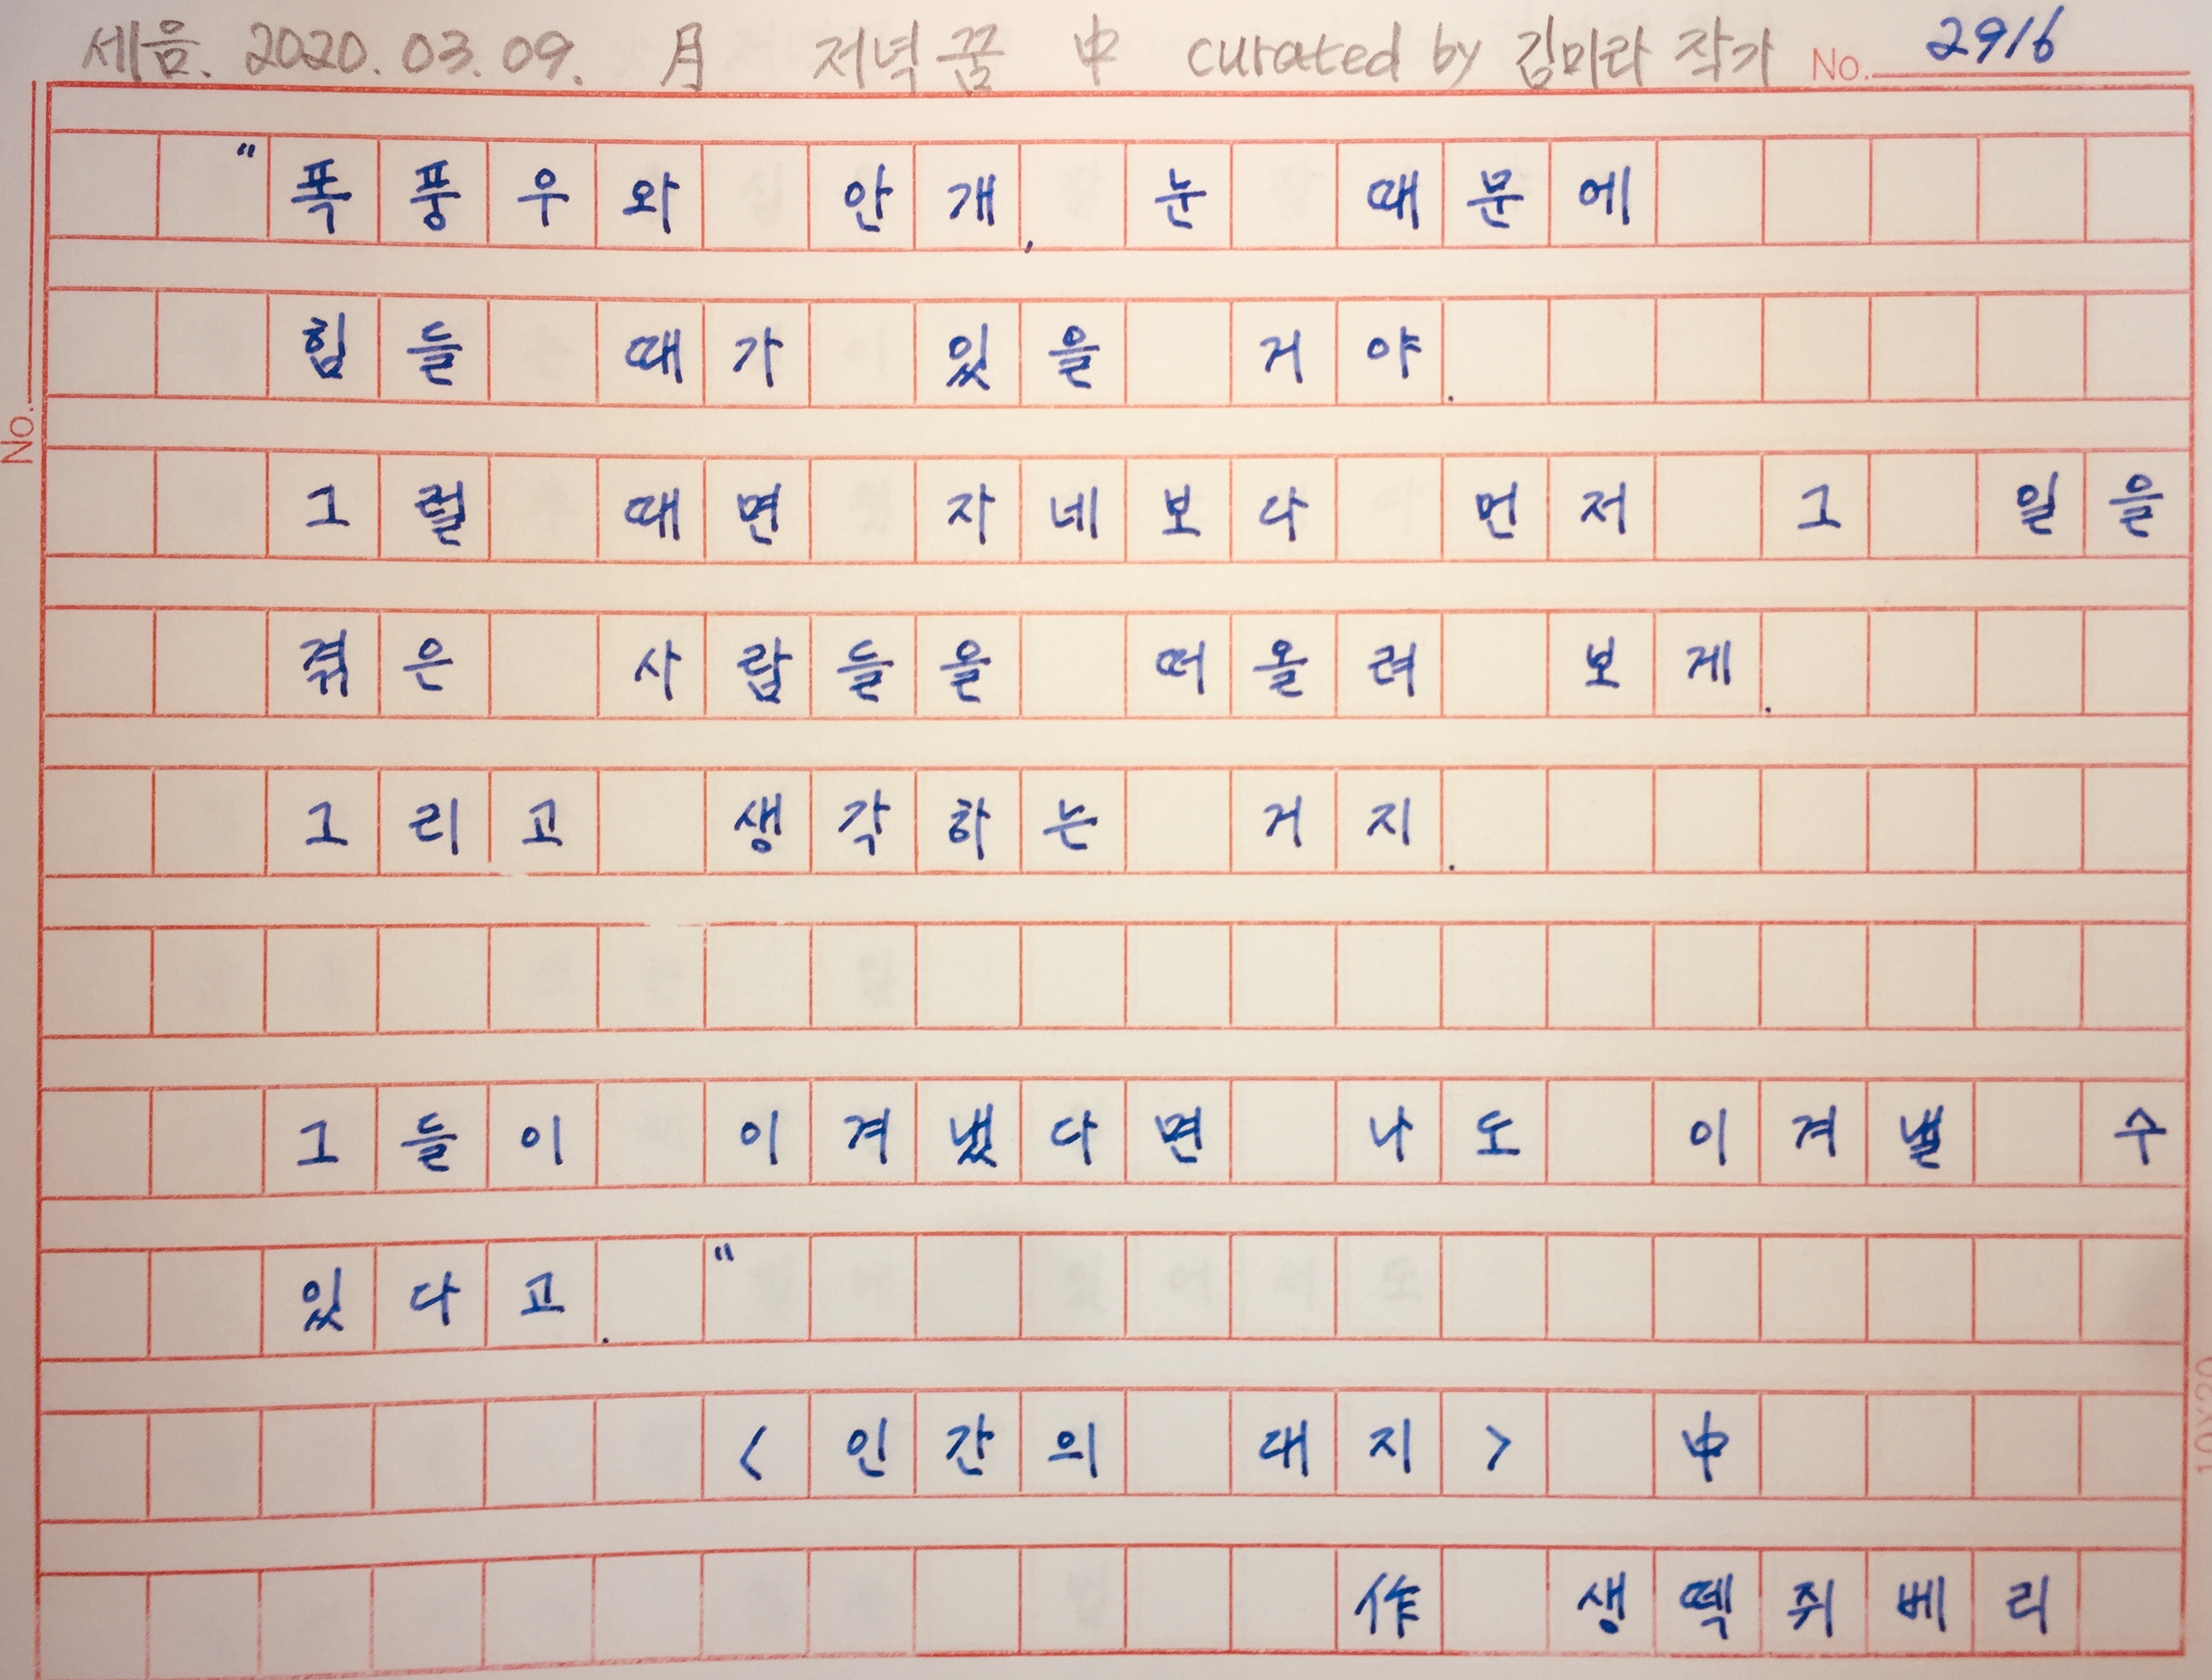 세음. 2020. 03. 09. 月 저녁꿈 中 curated by 김미라 작가 No. 2916
"폭풍우와 안개, 눈 때문에
힘들 때가 있을 거야.
그럴 때면 자네보다 먼저 그 일을
겪은 사람들을 떠올려 보게.
그리고 생각하는 거지.
그들이 이겨냈다면 나도 이겨낼 수
있다고."
<인간의 대지> 中
作 생떽쥐베리
No.
10X20